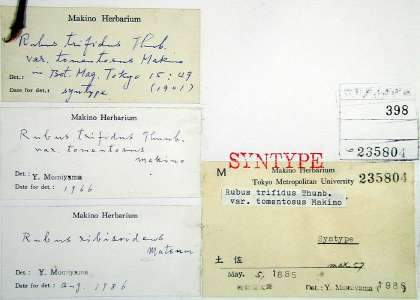 Makino Herbarium
Rubus trifidus Thunb.
var. tomentosus Makino
in Bot. Mag. Tokyo 15: 49
Det.: (1901)
Date for det.: syntype
Makino Herbarium
Rubus trifidus Thunb.
var. tomentosus
Makino
Det.: Y. Momiyama
Date for det.: 1966
Makino Herbarium
Rubus ribisoideus
Matsum
Det.: Y. Momiyama
Date for det.: Aug. 1986
398
235804
SYNTYPE
M
Makino Herbarium
Tokyo Metropolitan University 235804
Rubus trifidus Thunb.
var. tomentosus Makino
Syntype
土 佐
May. 5, 1885
Det.: Y. Momiyama (1986